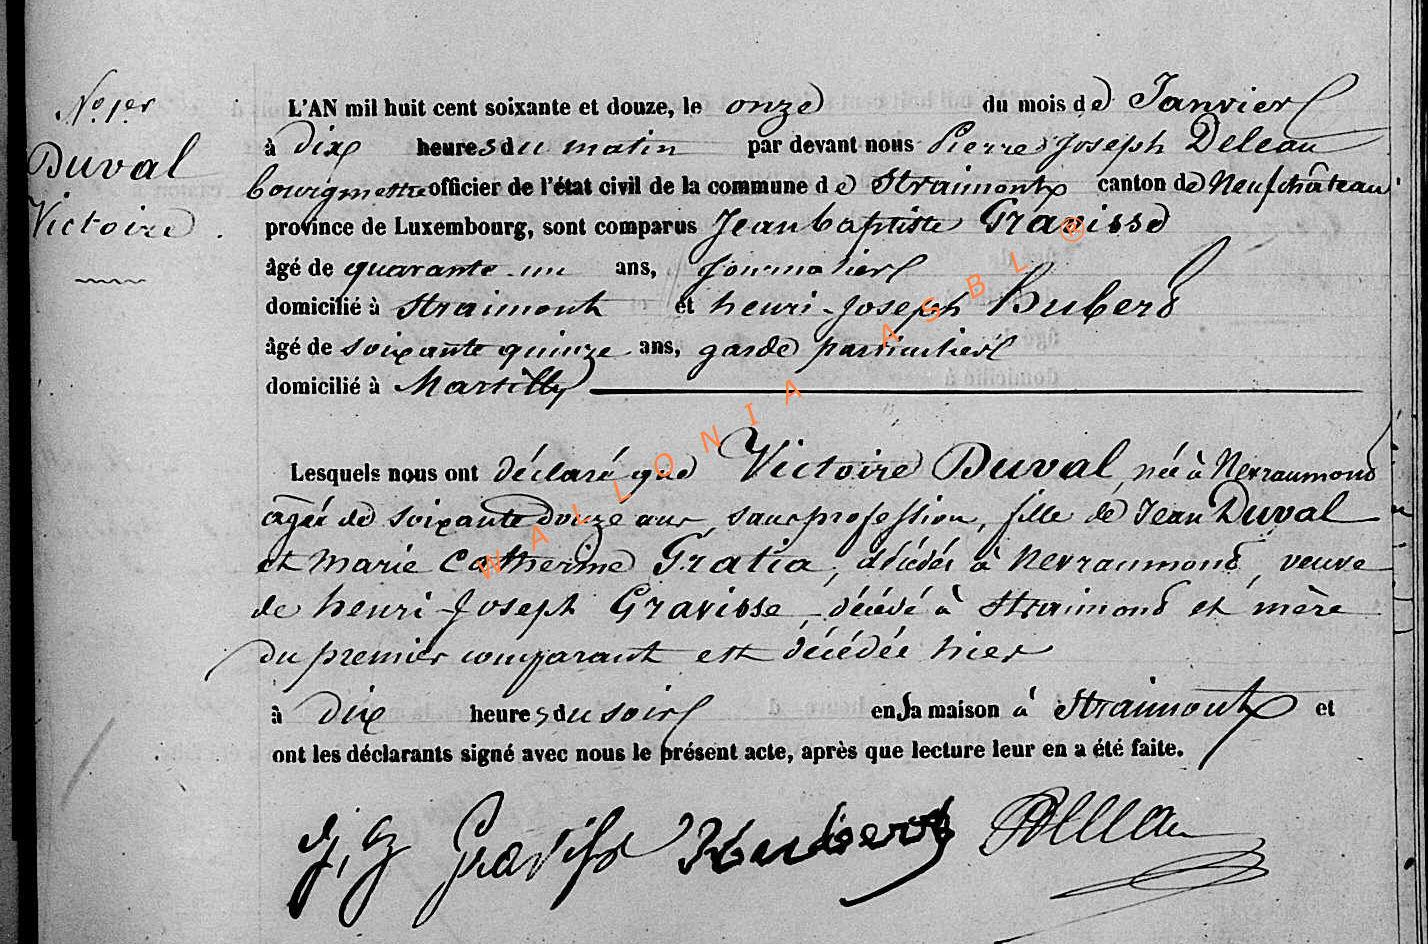 N° 1er
Duval
Victoire.
L'AN mil huit cent soixante et douze, le onze du mois de Janvier
à dix heures du matin par devant nous Pierre Joseph Deleau
bourgmestre officier de l'état civil de la commune de Straimont canton de Neufchâteau
province de Luxembourg, sont comparus Jean baptiste Gravisse
âgé de quarante-un ans, journalier
domicilié à Straimont et henri-Joseph Hubert
âgé de soixante quinze ans, garde particulier
domicilié à Martilly
Lesquels nous ont déclaré que Victoire Duval, née à Nevraumond
agée de soixante douze ans, sans profession, fille de Jean Duval
et marie Catherine Gratia, décédés à Nevraumond, veuve
de henri-Joseph Gravisse, décédé à Straimond et mère
du premier comparant est décédée hier
à dix heures du soir en sa maison à Straimont et
ont les déclarants signé avec nous le présent acte, après que lecture leur en a été faite.
Gravisse Hubert Deleau
WALLONIA ASBL ®